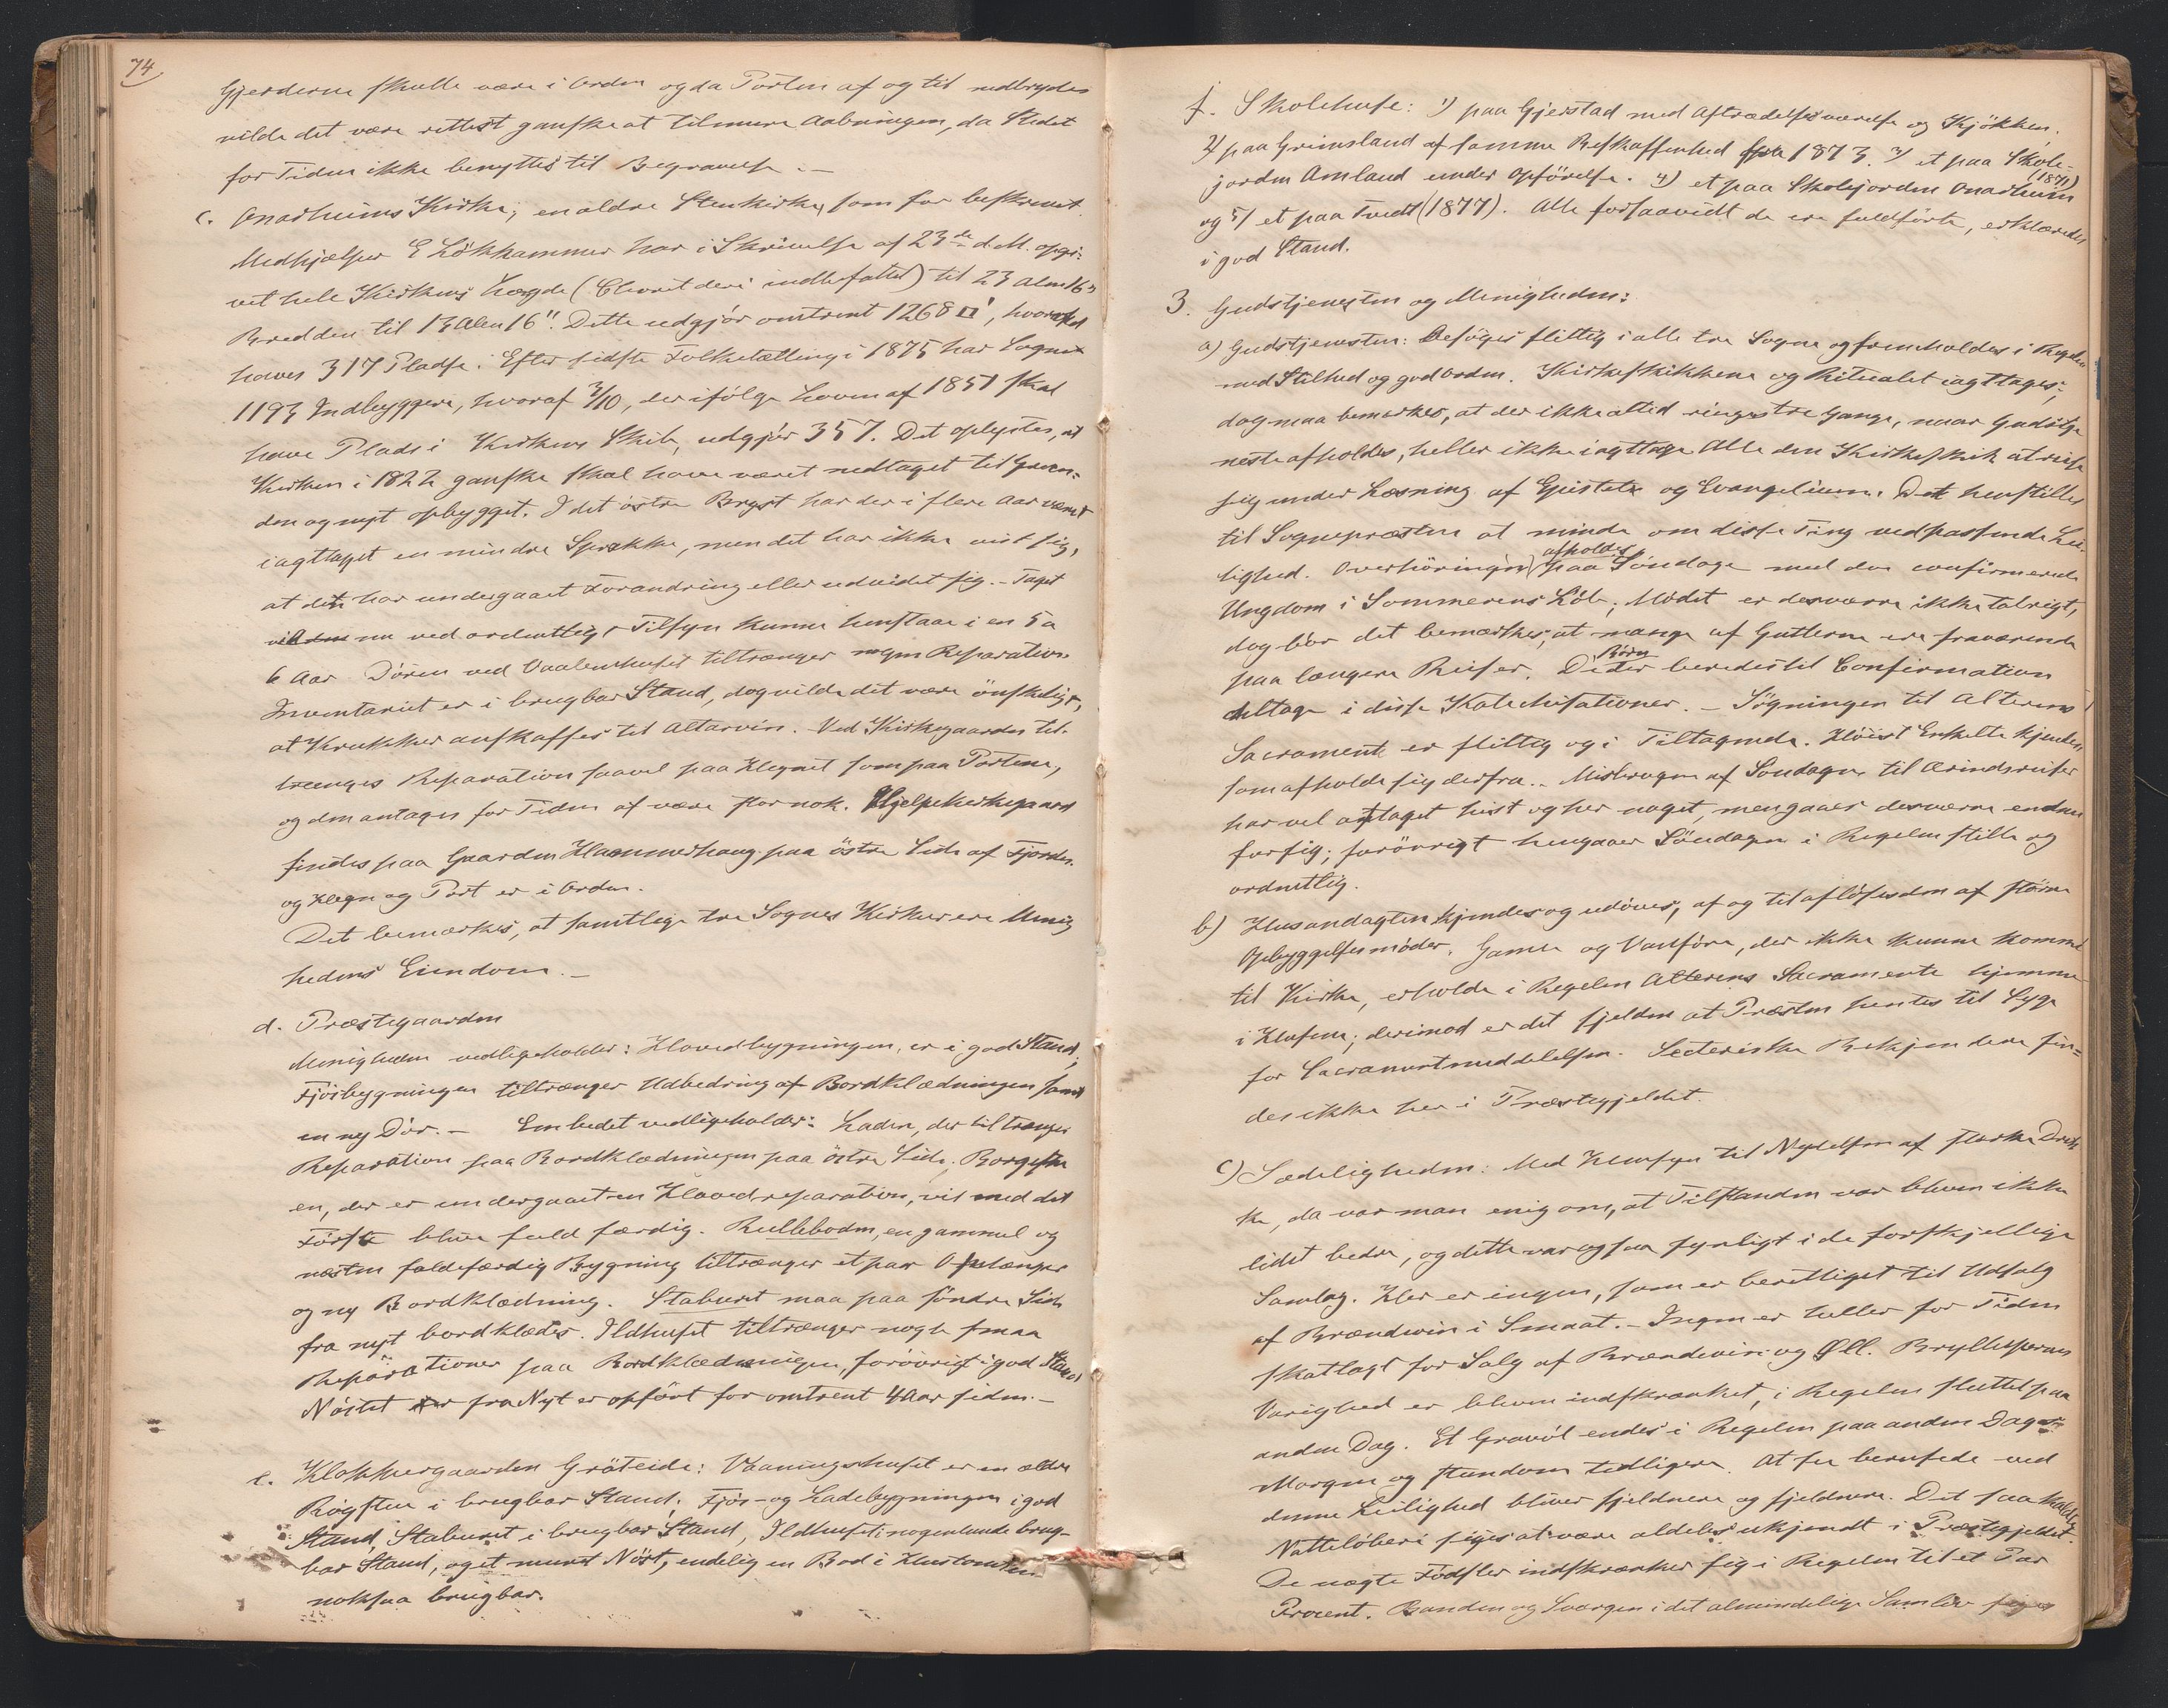 74
Gjerderne skulle være i Orden og da Porten af og til nedbrydes
vilde det være rettest ganske at tilmure Aabningen, da Stedet
for Tiden ikke benyttes til Begravelse. —
c. Onarheims Kirke, en ældre Stenkirke, som før beskrevet.
Medhjælper E Løkhammer har i Skrivelse af 23de d. M. opgi-
vet hele Kirkens Længde (Choret deri indbefattet) til 23 Alen 16"
Bredden til 13 Alen 16". Dette udgjør omtrent 1268 □', hvorefter
haves 317 Pladse. Efter sidste Folketælling i 1875 har Sognet
1193 Indbyggere, hvoraf 3/10, der ifølge Loven af 1851 skal
have Plads i Kirkens Skib, udgjør 357. Det oplystes, at
Kirken i 1822 ganske skal have været nedtaget til Grun-
den og nyt opbygget. I det østre Bryst har der i flere Aar været
iagttaget en mindre Sprække, men det har ikke vist sig,
at den har undergaaet Forandring eller udvidet sig. – Taget
vil nu ved ordentligt Tilsyn kunne henstaae i en 5 a
6 Aar Døren ved Vaabenhuset tiltrænger nogen Reparation
Inventariet er i brugbar Stand, dog vilde det være ønskeligt,
at Krukker anskaffes til Altarvin. Ved Kirkegaarden til-
trænges Reparation saavel paa Hegnet som paa Portene,
og den antages for Tiden at være stor nok. Hjelpekirkegaard
findes paa Gaarden Hammerhaug paa østre Side af Fjorden
og Hegn og Port er i Orden.
Det bemærkes, at samtlige tre Sognes Kirker ere Menig
hedens Eiendom. —
d. Præstegaarden
Menigheden vedligeholder: Hovedbygningen, er i god Stand,
Fjøsbygningen tiltrænger Udbedring af Bordklædningen samt
en ny Dør. — Embedet vedligeholder: Laden, der tiltrænger
Reparation paa Bordklædningen paa østre Side; Borgestu
en, der er undergaaet en Hovedreparation, vil med det
Første blive fuld færdig. Rulleboden, en gammel og
næsten faldefærdig Bygning tiltrænger et par Oplænger
og ny Bordklædning. Staburet maa paa søndre Side
fra nyt bordklædes. Ildhuset tiltrænger nogle smaa
Reparationer paa Bordklædningen, forøvrigt i god Stand
Nøstet fra Nyt er opført for omtrent 4 Aar siden. —
e. Klokkergaarden Gråteide: Vaaningshuset er en ældre
Røgstue i brugbar Stand; Fjøs- og Ladebygningen i god
Stand, Staburet i brugbar Stand, Ildhuset i nogenlunde brug-
bar Stand, og et muret Nøst, endelig en Bod i Hustomten
noksaa brugbar.
f. Skolehuse: 1) paa Gjerstad med Aftrædelsesværelse og Kjøkken.
2) paa Grimsland af samme Beskaffenhed fra 1873. 3) et paa Skole-
jorden Amland under Opførelse. 4) et paa Skolejorden Onarheim (1871)
og 5) et paa Tvedt (1877). Alle forsaavidt de ere fuldførte, erklæredes
i god Stand.
3. Gudstjenesten og Menigheden:
a) Gudstjenesten: Besøges flittig i alle tre Sogne og fremholdes i Regelen
med Stilhed og god Orden. Kirkeskikkene og Ritualet iagttages;
dog maa bemærkes, at der ikke altid ringes tre Gange, naar Gudstje
neste afholdes, heller ikke iagttage Alle den Kirkeskik at reise
sig under Læsning af Epistel og Evangelium. Det henstilles
til Sognepræsten at minde om disse Ting ved passende Lei-
lighed. Overhøringer afholdes paa Søndage med den confirmerede
Ungdom i Sommerens Løb. Mødet er desværre ikke talrigt,
dog bør det bemærkes, at mange af Gutterne ere fraværende
paa længere Reiser. De Børn der beredes til Confirmation
deltage i disse Katechisationer. — Søgningen til Alterens
Sacrament er flittig og i Tiltagende. Høist Enkelte kjendes
som afholde sig derfra. – Misbrugen af Søndagen til Ærindsreiser
har vel aftaget hist og her noget, men gaaer desværre endnu
for sig; forøvrigt hengaaer Søndagen i Regelen stille og
ordentlig.
b) Husandagten kjendes og udøves, af og til afløses den af større
Opbyggelsesmøder. Gamle og Vanføre, der ikke kunne komme
til Kirke, erholde i Regelen Alterens Sacramente hjemme
i Husene; derimod er det sjelden at Præsten hentes til Syge
for Sacramentmeddelelsen. Secteriske Bekjendere fin-
des ikke her i Præstegjeldet.
c) Sædeligheden: Med Hensyn til Nydelsen af stærke Drik
ke, da var man enig om, at Tilstanden var bleven ikke
lidet bedre, og dette var ogsaa synligt i de forskjellige
Samlag. Her er ingen, som er berettiget til Udsalg
af Brændevin i Smaat. — Ingen er heller for Tiden
skatlagt for Salg af Brændevin og Øll. Bryllupernes
Varighed er bleven indskrænket, i Regelen sluttet paa
anden Dag. Et Gravøl endes i Regelen paa anden Dags
Morgen og stundom tidligere. At see berusede ved
denne Leilighed bliver sjeldnere og sjeldnere. Det saa kaldte
Natteløberi siges at være aldeles ukjendt i Præstegjeldet.
De uægte Fødsler indskrænker sig i Regelen til et Par
Procent. Banden og Sværgen i det almindelige Samliv siges